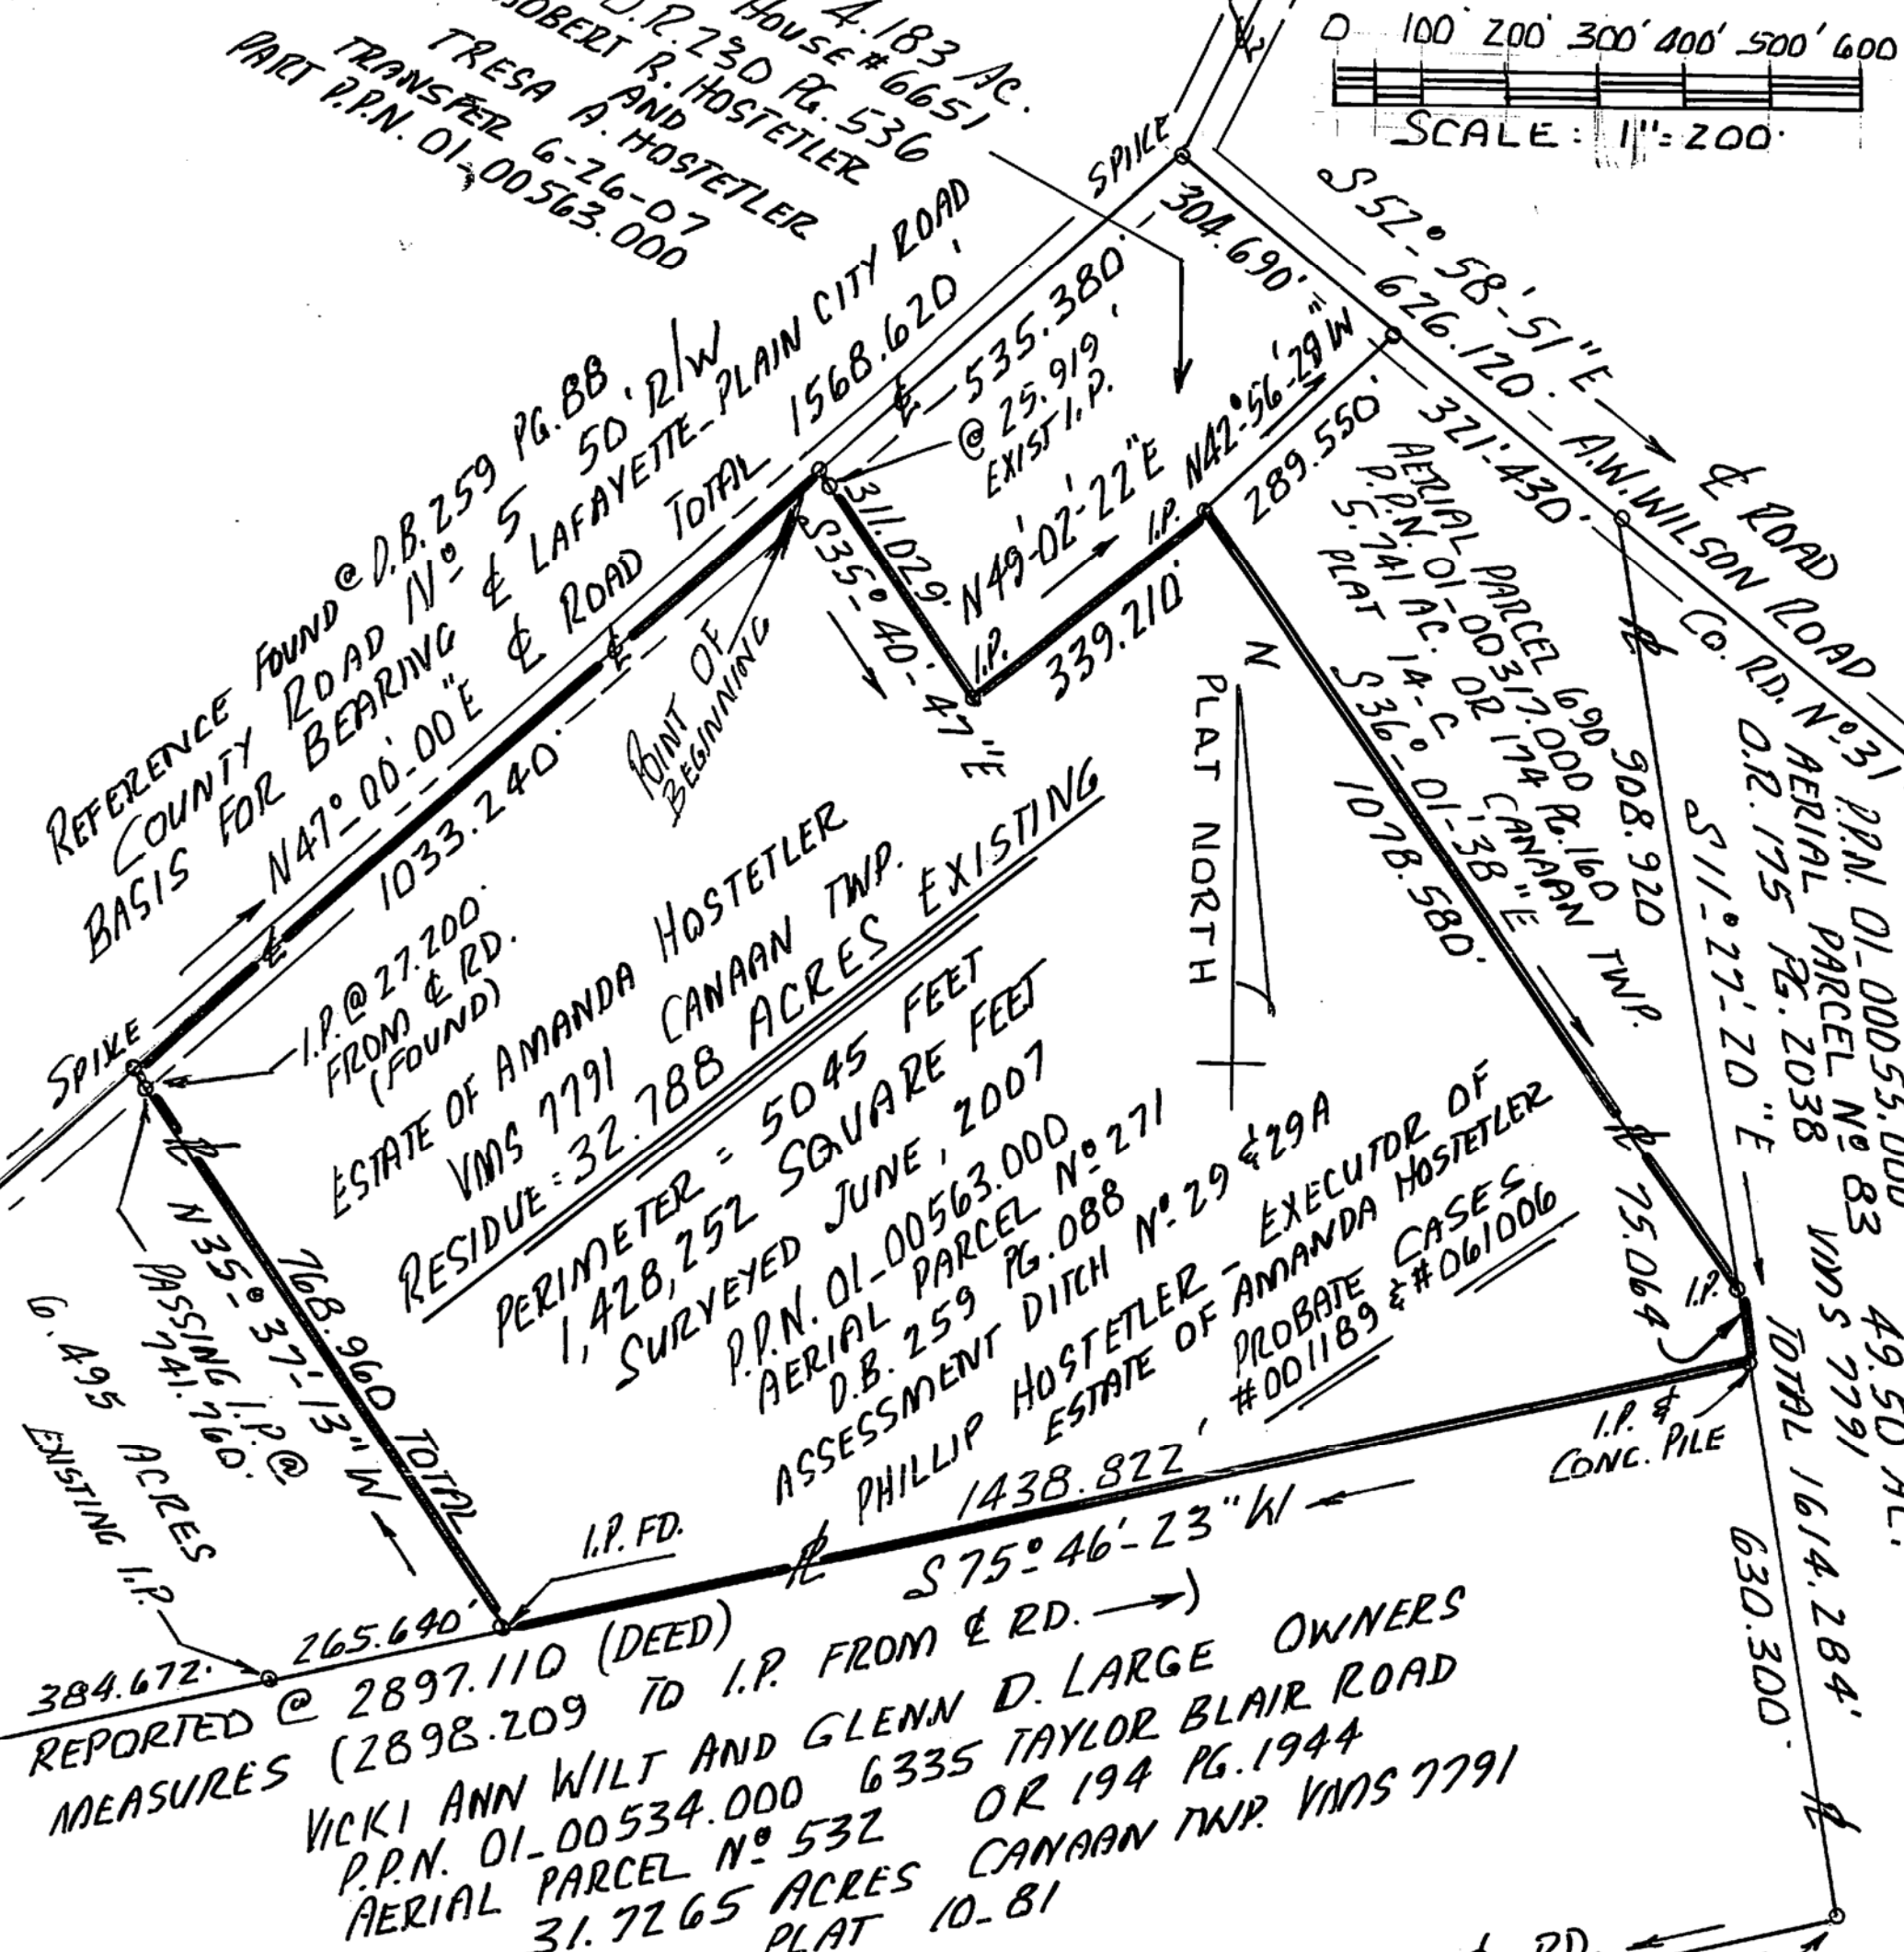 4.183 AC.
HOUSE # 6651
O.R. 230 PG. 536
ROBERT R. HOSTETLER
AND
TRESA A. HOSTETLER
TRANSFER 6-26-07
PART P.P.N. 01-00563.000
0 100' 200' 300' 400' 500' 600
SCALE: 1"=200'
SPIKE
304.690'
S 52°-58'-51"E
626.120'
A.W. WILSON ROAD
₵ ROAD
CO. RD. Nº 31
321.430'
REFERENCE FOUND @ D.B. 259 PG. 88
COUNTY ROAD Nº 5 50' R/W
BASIS FOR BEARING ₵ LAFAYETTE-PLAIN CITY ROAD
N47°-00'-00"E ₵ ROAD TOTAL 1568.620'
1033.240'
535.380'
@ 25.919'
EXIST I.P.
N42°-56'-28"W
289.550'
311.029'
S35°-40'-47"E
N49°-02'-22"E
339.210'
I.P.
I.P.
POINT OF
BEGINNING
AERIAL PARCEL 690
P.P.N. 01-00317.000
5.741 AC. OR 174 PG. 160
PLAT 14-C CANAAN TWP.
S36°-01'-38"E
1078.580'
908.920
S11°-27'-20"E
TOTAL 1614.284'
630.300'
P.P.N. 01-00055.000 49.50 AC.
AERIAL PARCEL Nº 83 VMS 7791
O.R. 175 PG. 2038
N
PLAT NORTH
SPIKE
I.P. @ 27.200'
FROM ₵ RD.
(FOUND)
ESTATE OF AMANDA HOSTETLER
VMS 7791 CANAAN TWP.
RESIDUE = 32.788 ACRES EXISTING
PERIMETER = 5045 FEET
1,428,252 SQUARE FEET
SURVEYED JUNE, 2007
P.P.N. 01-00563.000
AERIAL PARCEL Nº 271
D.B. 259 PG. 088
ASSESSMENT DITCH Nº 29 & 29A
PHILLIP HOSTETLER - EXECUTOR OF
ESTATE OF AMANDA HOSTETLER
PROBATE CASES
#001189 & #061006
75.064
I.P.
I.P. &
CONC. PILE
N35°-37'-13"W
768.960 TOTAL
PASSING I.P. @
741.760'
6.495 ACRES
EXISTING I.P.
I.P. FD.
1438.822'
S75°46'-23"W
265.640'
384.672'
REPORTED @ 2897.110 (DEED)
MEASURES (2898.209 TO I.P. FROM ₵ RD.)
VICKI ANN WILT AND GLENN D. LARGE OWNERS
P.P.N. 01-00534.000 6335 TAYLOR BLAIR ROAD
AERIAL PARCEL Nº 532 OR 194 PG. 1944
31.7265 ACRES CANAAN TWP. VMS 7791
PLAT 10-81
RD.